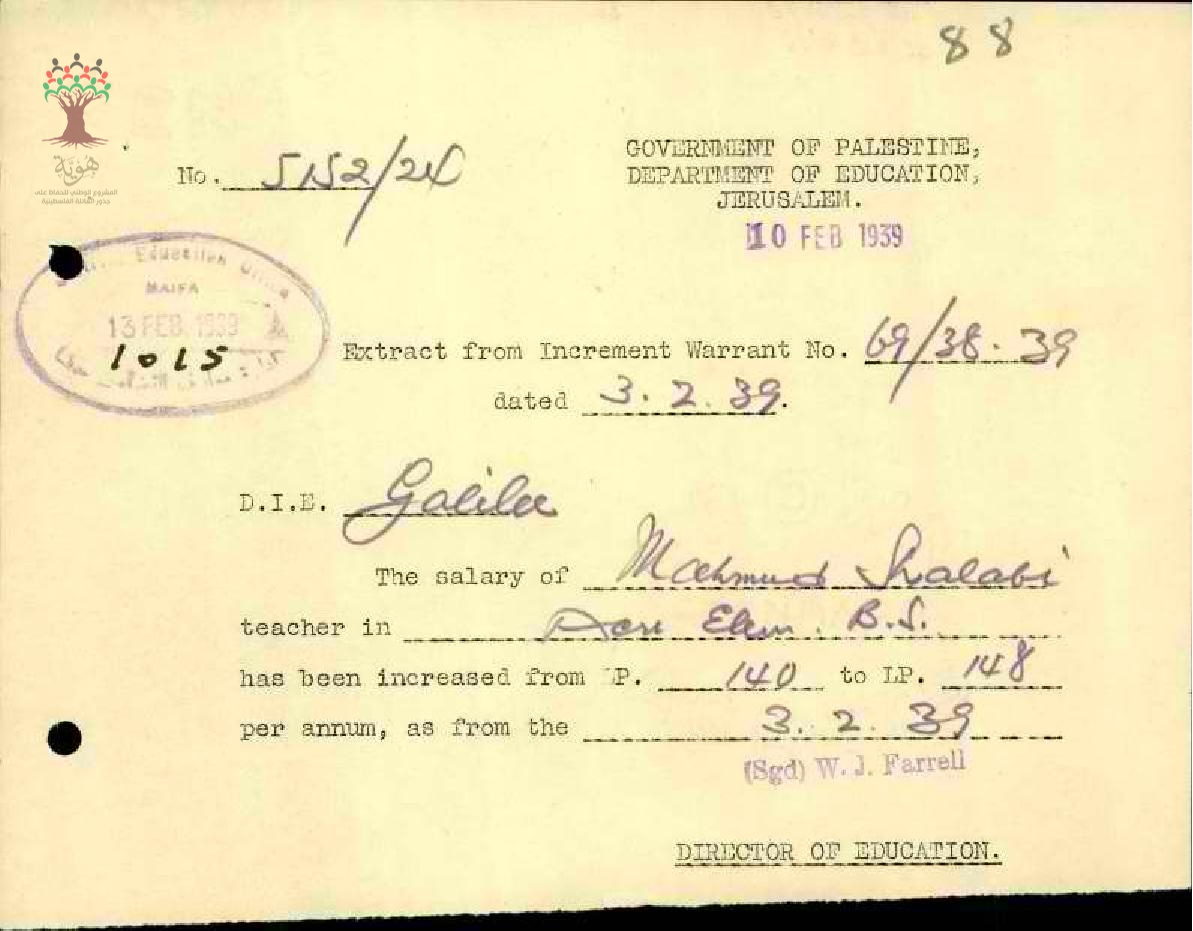 88
هوية
المشروع الوطني للحفاظ على
جذور العائلة الفلسطينية
No. 5152/24
GOVERNMENT OF PALESTINE,
DEPARTMENT OF EDUCATION,
JERUSALEM.
10 FEB 1939
Education Office
HAIFA
13 FEB 1939
1015
Extract from Increment Warrant No. 69/38-39
dated 3.2.39.
D.I.E. Galilee
The salary of Mahmud Shalabi
teacher in Acre Elem. B.S.
has been increased from LP. 140 to LP. 148
per annum, as from the 3.2.39
(Sgd) W. J. Farrell
DIRECTOR OF EDUCATION.